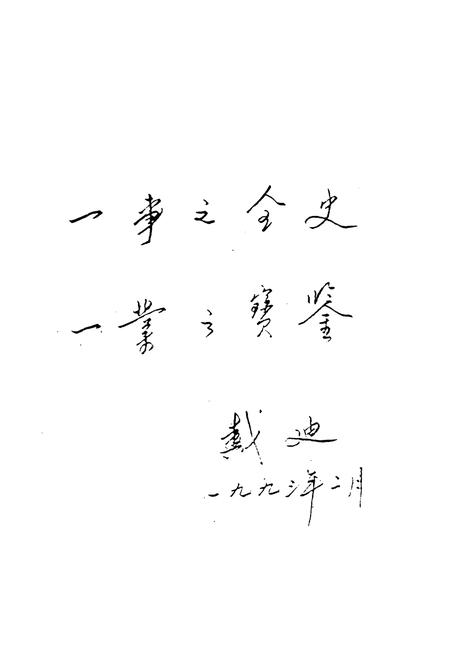 一事之全史
一業之寶鉴
戴迪
一九九三年二月